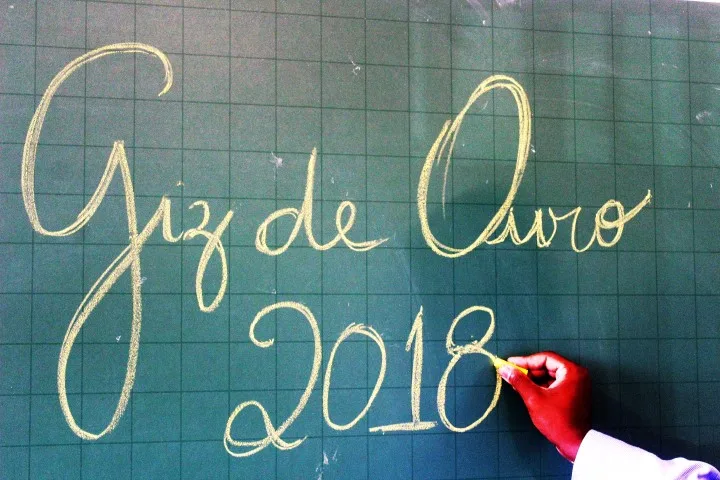 Giz de Ouro
2018